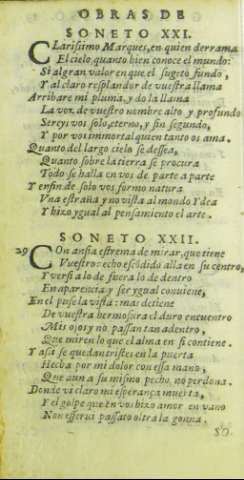 OBRAS DE
SONETO XXI.
CLarisimo Marques, en quien derrama
El cielo, quanto bien conoce el mundo:
Si al gran valor en que el sugeto fundo,
Y al claro resplandor de vuestra llama
Arribare mi pluma, y do la llama
La voz de vuestro nombre alto y profundo
Sereys vos solo, eterno, y sin segundo,
Y por vos immortal quien tanto os ama.
Quanto del largo cielo se dessea,
Quanto sobre la tierra se procura
Todo se halla en vos de parte a parte
Y en fin de solo vos formo natura
Una estraña y no vista al mundo Ydea
Y hizo ygual al pensamiento el arte.
SONETO XXII.
29 COn ansia estrema de mirar, que tiene
Vuestro pecho escõdido alla en su centro,
Y ver si a lo de fuera lo de dentro
En aparencia y ser ygual conuiene,
En el puse la vista: mas detiene
De vuestra hermosura el duro encuentro
Mis ojos y no passan tan adentro,
Que miren lo que el alma en si contiene.
Y assi se quedan tristes en la puerta
Hecha por mi dolor con essa mano,
Que aun a su mismo pecho, no perdona.
Donde vi claro mi esperança muerta,
Y el golpe que en vos hizo amor en vano
Non esserui passato oltra la gonna.